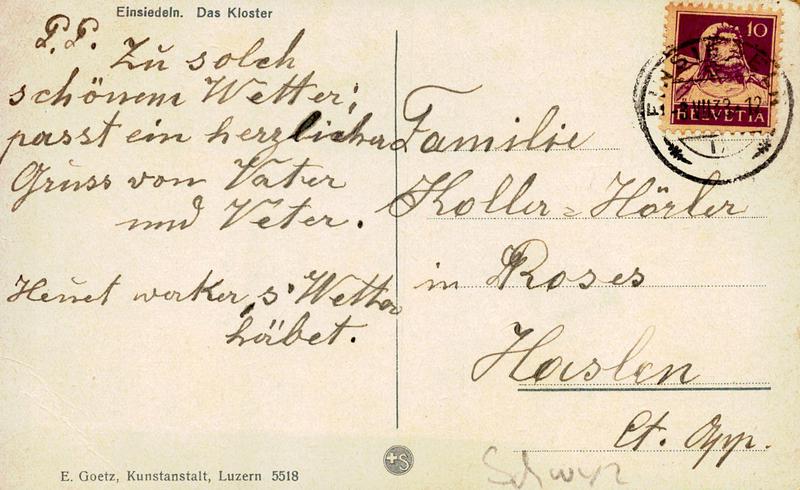 Einsiedeln. Das Kloster
P.P. Zu solch
schönem Wetter;
passt ein herzlicher
Gruss von Vater
und Veter.
Heuet worker, s' Wetter
häbet.
10
HELVETIA
Familie
Koller=Hörler
in Roses
Haslen
Ct. App.
Schwyz
E. Goetz, Kunstanstalt, Luzern 5518
+S